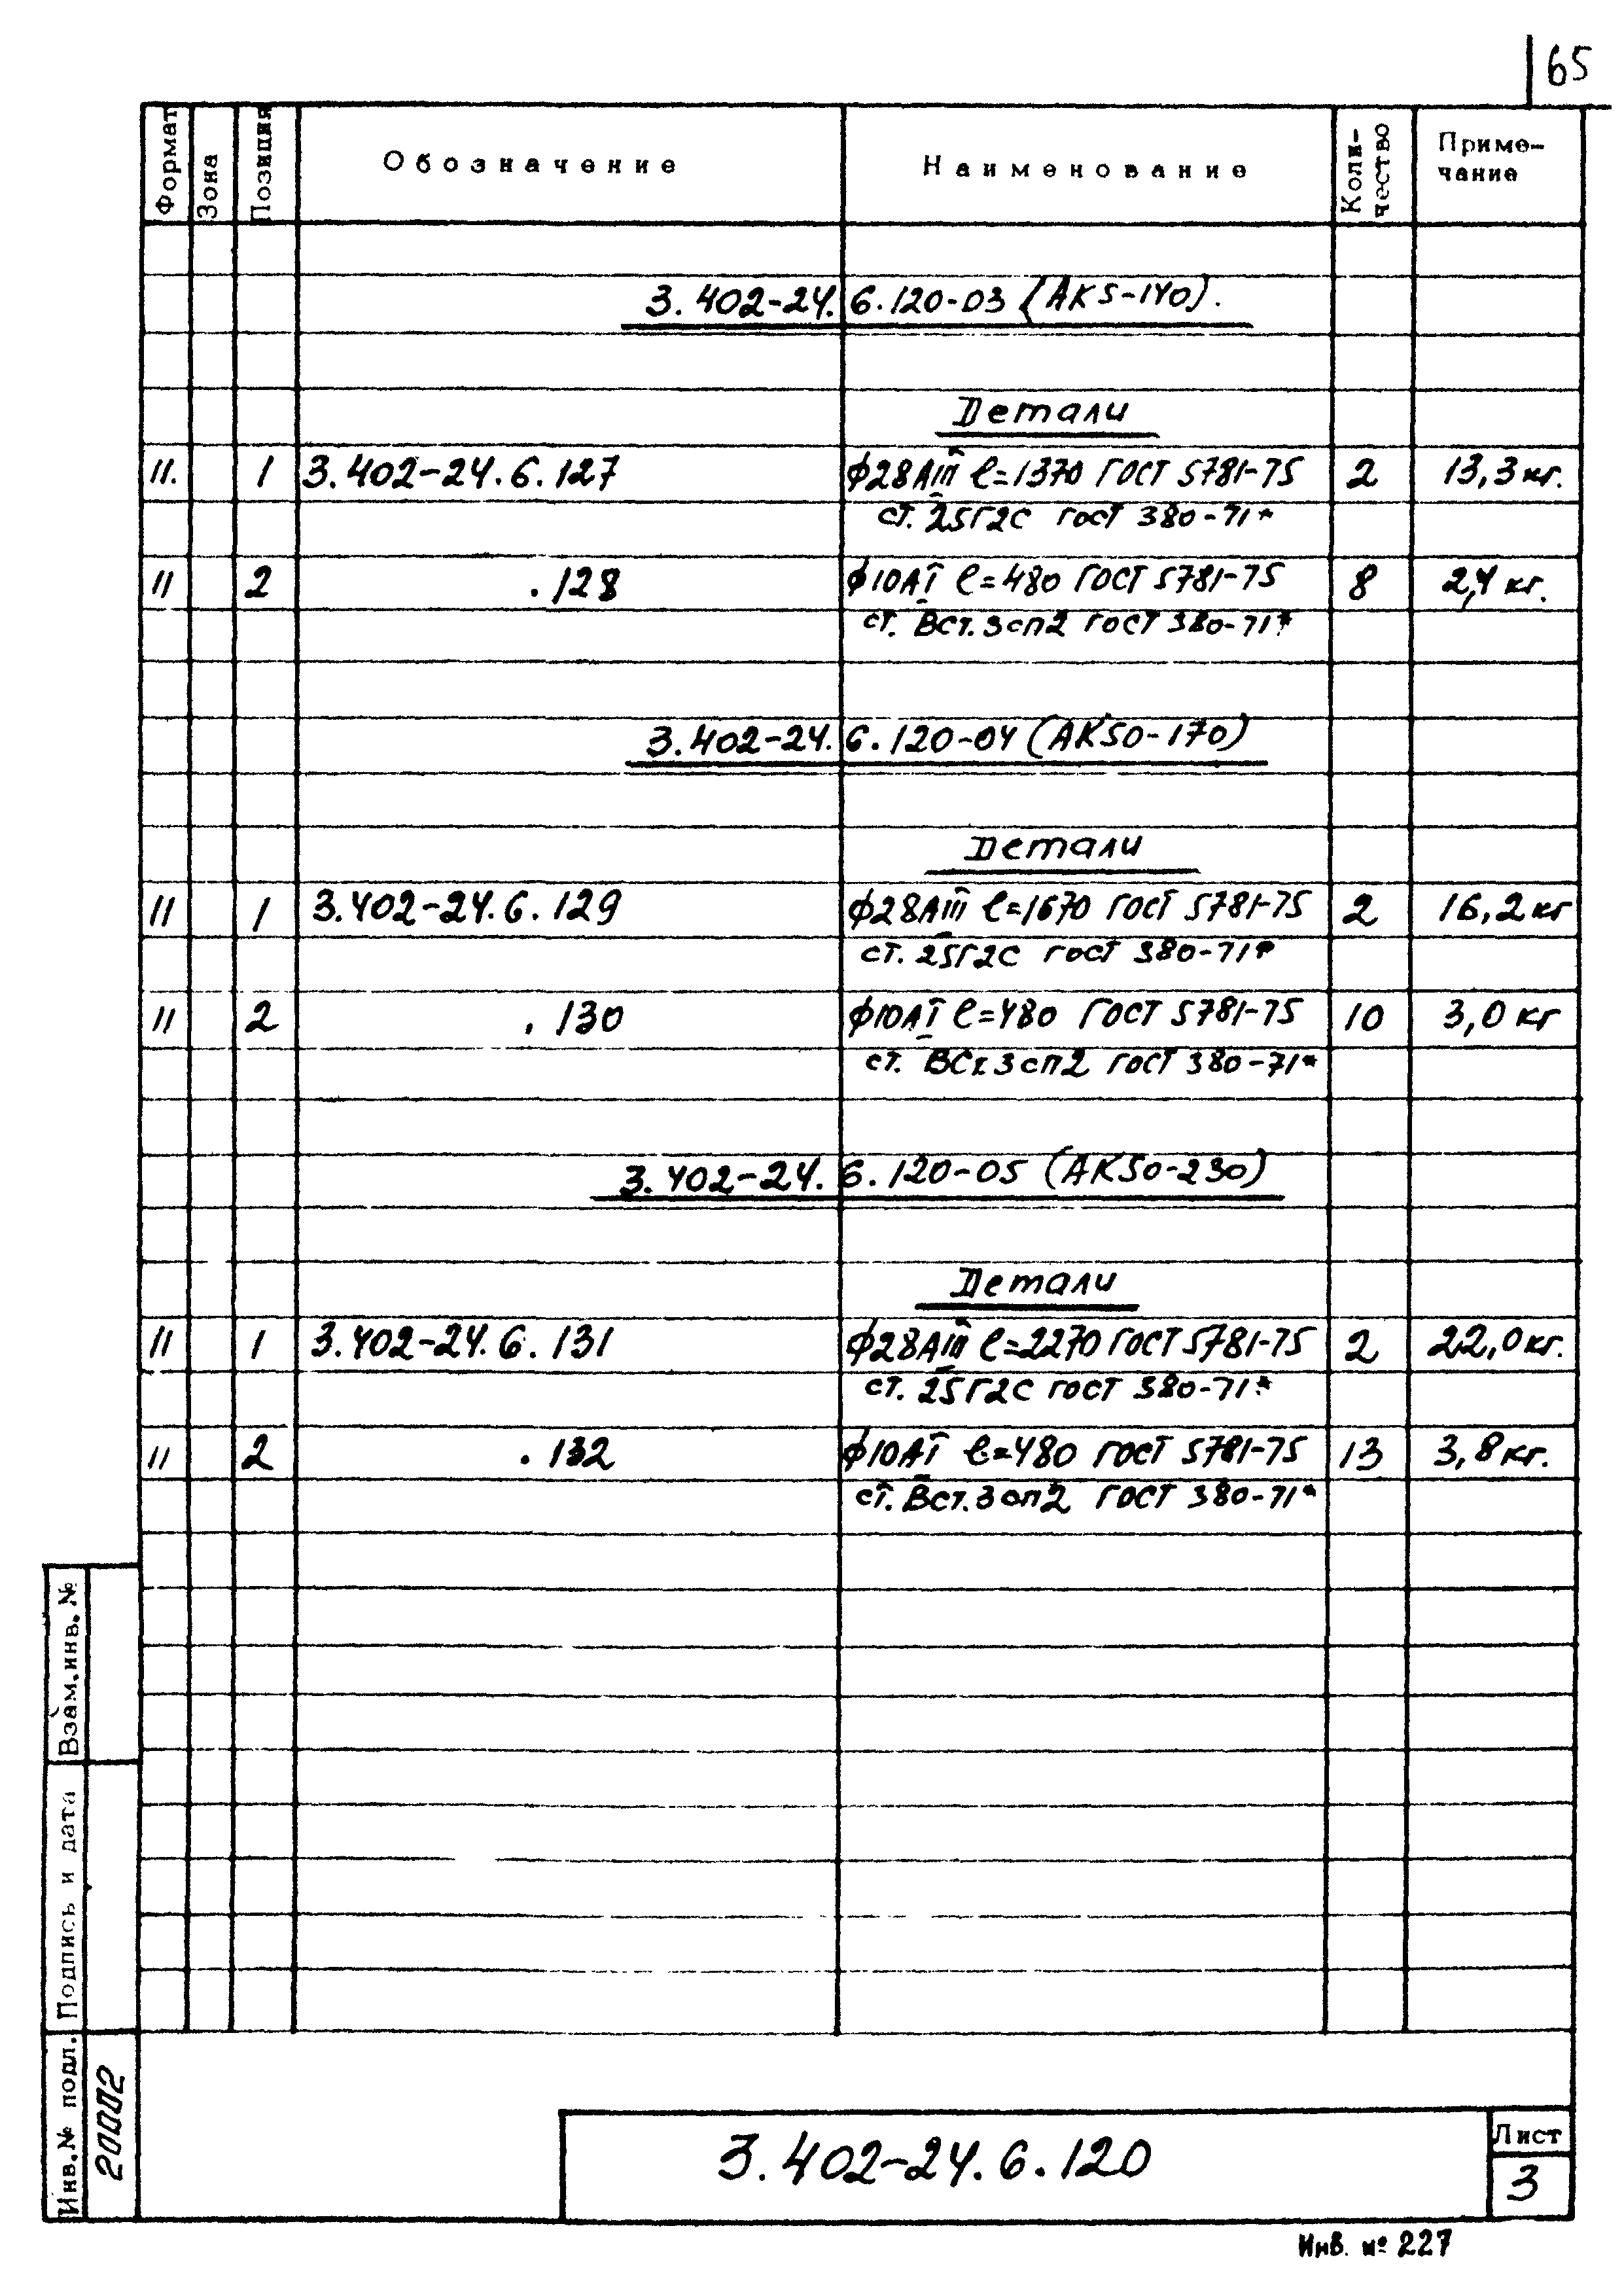 65
Формат Зона Позиция Обозначение Наименование Коли-чество Приме-чание
3.402-24.6.120-03 (АК5-140).
Детали
11. 1 3.402-24.6.127 ф28АIII ℓ=1370 ГОСТ 5781-75 2 13,3 кг.
ст. 25Г2С ГОСТ 380-71*
11 2 .128 ф10АI ℓ=480 ГОСТ 5781-75 8 2,4 кг.
ст. Вст.3сп2 ГОСТ 380-71*
3.402-24.6.120-04 (АК50-170)
Детали
11 1 3.402-24.6.129 ф28АIII ℓ=1670 ГОСТ 5781-75 2 16,2 кг
ст. 25Г2С ГОСТ 380-71*
11 2 .130 ф10АI ℓ=480 ГОСТ 5781-75 10 3,0 кг
ст. ВСт3сп2 ГОСТ 380-71*
3.402-24.6.120-05 (АК50-230)
Детали
11 1 3.402-24.6.131 ф28АIII ℓ=2270 ГОСТ 5781-75 2 22,0 кг.
ст. 25Г2С ГОСТ 380-71*
11 2 .132 ф10АI ℓ=480 ГОСТ 5781-75 13 3,8 кг.
ст. Вст.3сп2 ГОСТ 380-71*
Взам.инв. №
Подпись и дата
Инв.№ подл.
20002
3.402-24.6.120
Лист
3
Инв. № 227